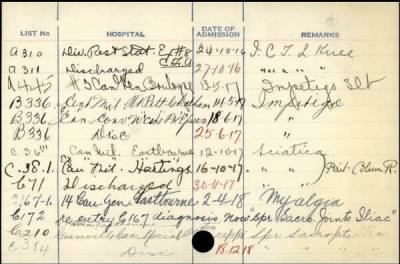 LIST No HOSPITAL DATE OF ADMISSION REMARKS
A 310 Div. Rest Stat. 24-10-16 I.C.T. L Knee
A 311 Discharged 27-10-16 " " "
A 445 #3 Can Gen Boulogne 13-5-17 Impetigo Slt
B 336 Cent Mil Chatham 14.5.17 Impetigo
B 336 Can Conv Epsom 18.6.17 "
B 336 Disc 25-6-17 "
C 36 Can Mil. Eastbourne 12-10-17 Sciatica
C.38.1 Can "Mil". Hastings. 16-10-17
C71 Discharged 30-11-17
C167-1. 14 Can. Gen Eastbourne 2-4-18 Myalgia
C172 re entry C167 diagnosis now Spr Sacro Joints Iliac"
C210 Can Special Spr Sacro
C384 Disc 18.12.18